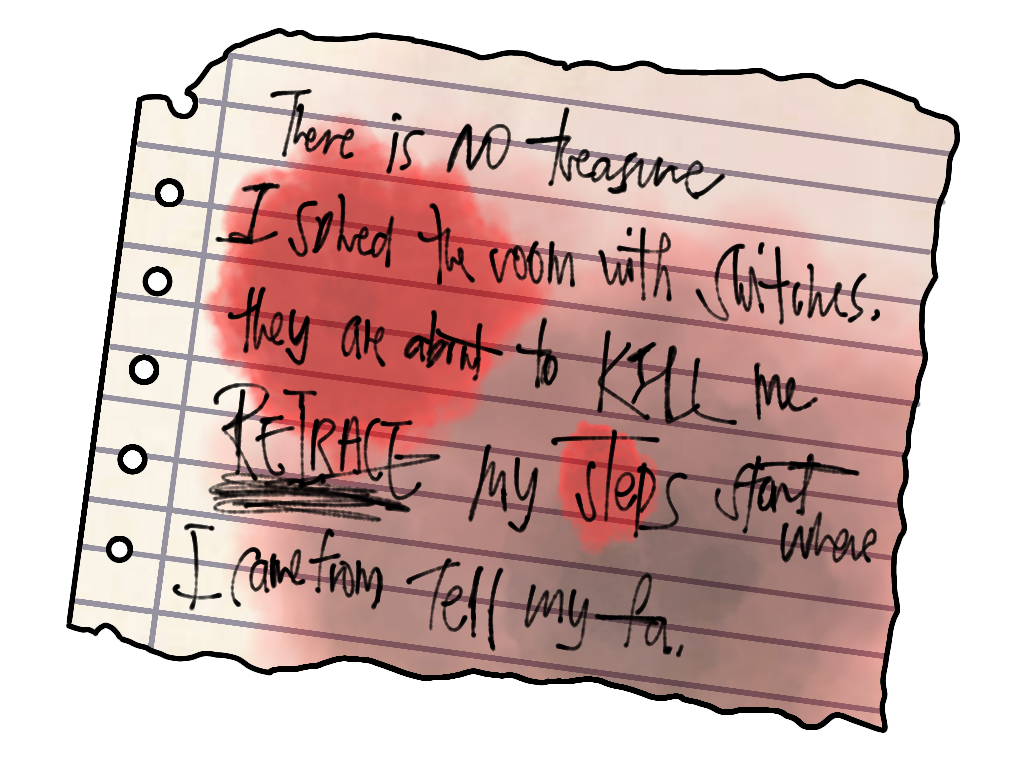 There is NO treasure
I solved the room with switches.
they are about to KILL me
RETRACE my steps start
where
I came from Tell my fa.